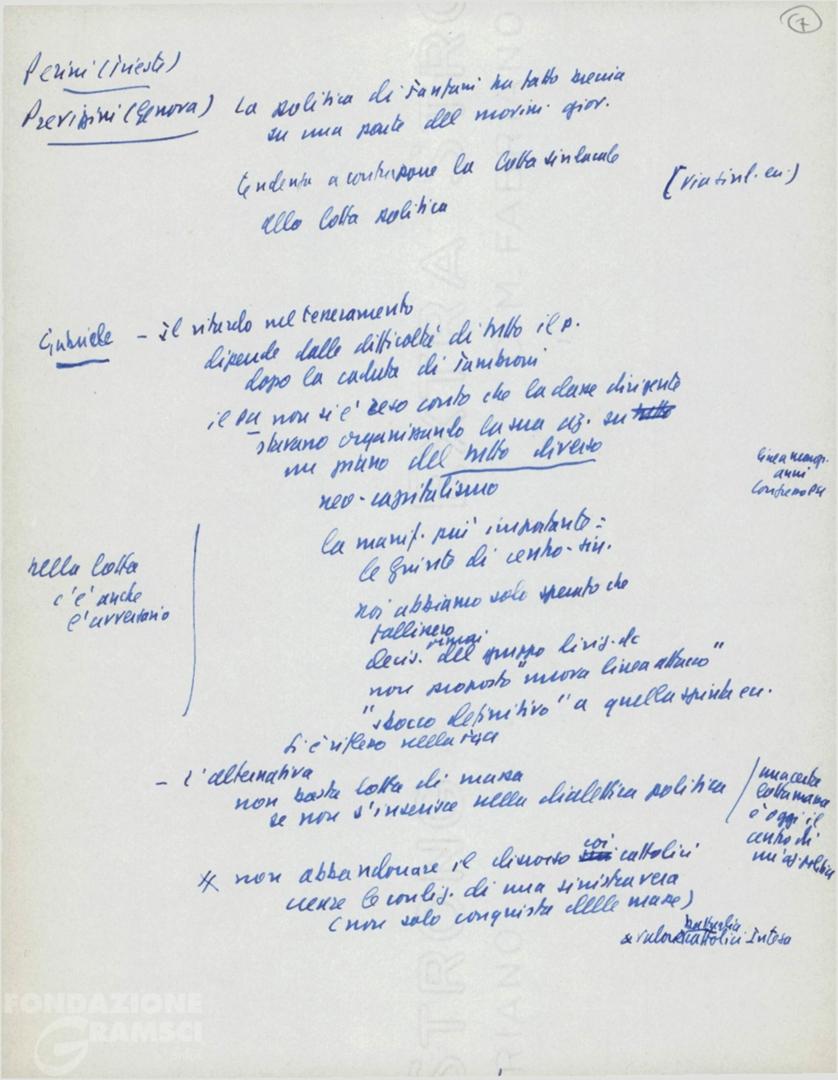 7
Perini (Trieste)
Previsini (Genova) La politica di Fanfani ha fatto breccia
su una parte del movim. giov.
tendenza a contrapporre la lotta sindacale
alla lotta politica
(
Gabriele — il ritardo nel tesseramento
dipende dalle difficoltà di tutto il p.
dopo la caduta di Tambroni
il PCI non si è reso conto che la classe dirigente
stavano organizzando la sua az. su tutto
un piano del tutto diverso
neo-capitalismo
linea
anni
nella lotta
c'è anche
l'avversario
la manif. più importante =
le Giunte di centro-sin.
noi abbiamo solo sperato che
fallissero
decis. del gruppo dirig. dc
non proposto "nuova linea attacco"
"sbocco definitivo" a quella spinta
si è riflesso nella FGCI
— l'alternativa
non basta lotta di massa
se non s'inserisce nella dialettica politica
una certa
lotta massa
è oggi il
centro di
un'az. politica
# non abbandonare il discorso coi cattolici
creare le condiz. di una sinistra vera
(non solo conquista delle masse)
battaglia
cattolici Intesa
FONDAZIONE
GRAMSCI